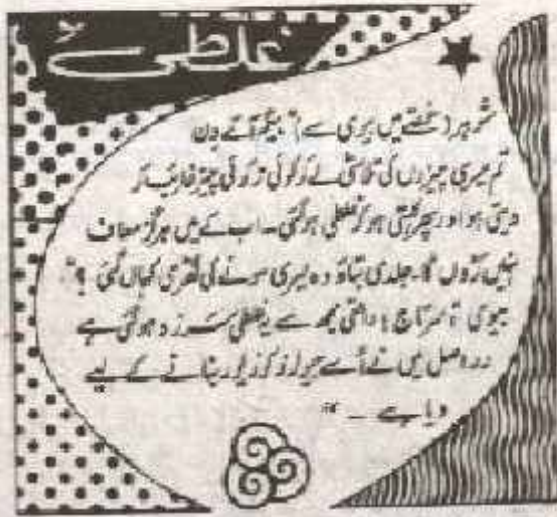 غلطی
شوہر (غصے میں بیوی سے) "بیگم آئے دن
تم میری چیزوں کی تلاشی لے کر کوئی نہ کوئی چیز غائب کر
دیتی ہو اور پھر کہتی ہو کہ غلطی ہوگئی۔ اب کے میں ہرگز معاف
نہیں کروں گا۔ جلدی بتاؤ وہ میری سونے کی کہاں گئی ؟"
بیوی "سرتاج! واقعی مجھ سے یہ غلطی سرزد ہوگئی ہے
دراصل میں نے اُسے جیولر کو زیور بنانے کے لیے
دیا ہے ۔"